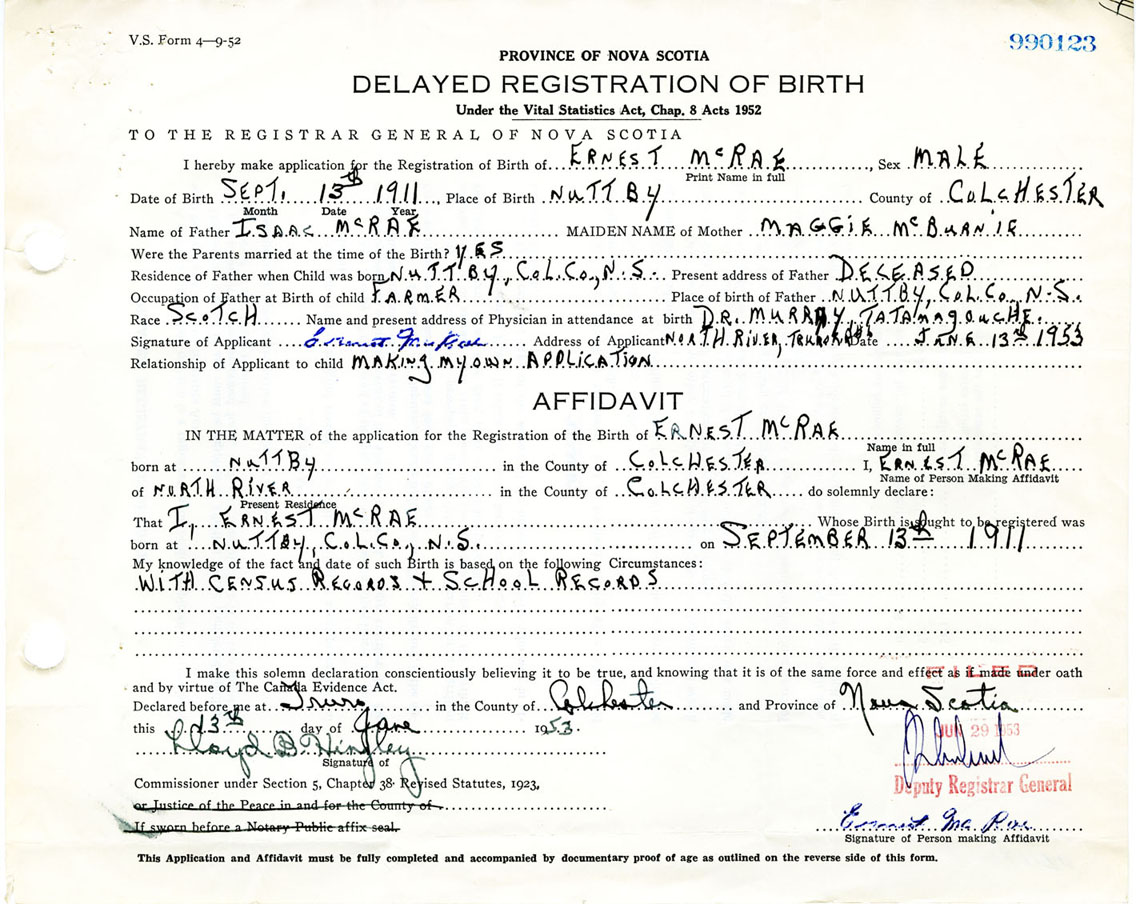 V.S. Form 4—9-52
990123
PROVINCE OF NOVA SCOTIA
DELAYED REGISTRATION OF BIRTH
Under the Vital Statistics Act, Chap. 8 Acts 1952
TO THE REGISTRAR GENERAL OF NOVA SCOTIA
I hereby make application for the Registration of Birth of ERNEST McRAE, Sex MALE
Print Name in full
Date of Birth SEPT. 13th 1911, Place of Birth NUTTBY County of COLCHESTER
Month Date Year
Name of Father ISAAC McRAE MAIDEN NAME of Mother MAGGIE McBURNIE
Were the Parents married at the time of the Birth? YES
Residence of Father when Child was born NUTTBY, COL. CO., N.S. Present address of Father DECEASED
Occupation of Father at Birth of child FARMER Place of birth of Father NUTTBY, COL. CO., N.S.
Race SCOTCH Name and present address of Physician in attendance at birth DR. MURRAY, TATAMAGOUCHE.
Signature of Applicant Ernest McRae Address of Applicant NORTH RIVER, Date 13th 1953
Relationship of Applicant to child MAKING MY OWN APPLICATION
AFFIDAVIT
IN THE MATTER of the application for the Registration of the Birth of ERNEST McRAE
Name in full
born at NUTTBY in the County of COLCHESTER I, ERNEST McRAE
Name of Person Making Affidavit
of NORTH RIVER in the County of COLCHESTER do solemnly declare:
Present Residence
That I, ERNEST McRAE Whose Birth is sought to be registered was
born at NUTTBY, COL. CO., N.S. on SEPTEMBER 13th 1911
My knowledge of the fact and date of such Birth is based on the following Circumstances:
WITH CENSUS RECORDS + SCHOOL RECORDS
I make this solemn declaration conscientiously believing it to be true, and knowing that it is of the same force and effect as if made under oath
FILED
and by virtue of The Canada Evidence Act.
Declared before me at Truro in the County of Colchester and Province of Nova Scotia
this 13th day of June 1953.
JUN 29 1953
Lloyd B Hingley
Signature of
Commissioner under Section 5, Chapter 38 Revised Statutes, 1923,
Deputy Registrar General
or Justice of the Peace in and for the County of
If sworn before a Notary Public affix seal.
Ernest Mc Rae
Signature of Person making Affidavit
This Application and Affidavit must be fully completed and accompanied by documentary proof of age as outlined on the reverse side of this form.